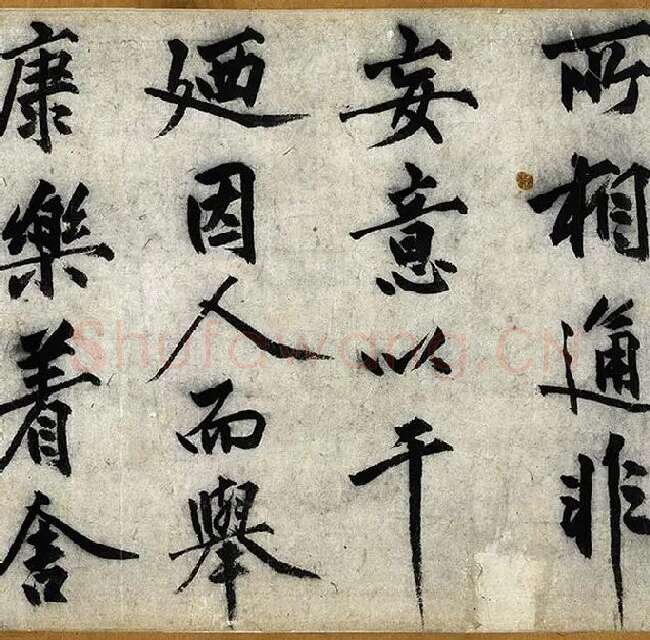 所相通非
妄意以干
廼因人而舉
康樂着舍
Shufawang.CN